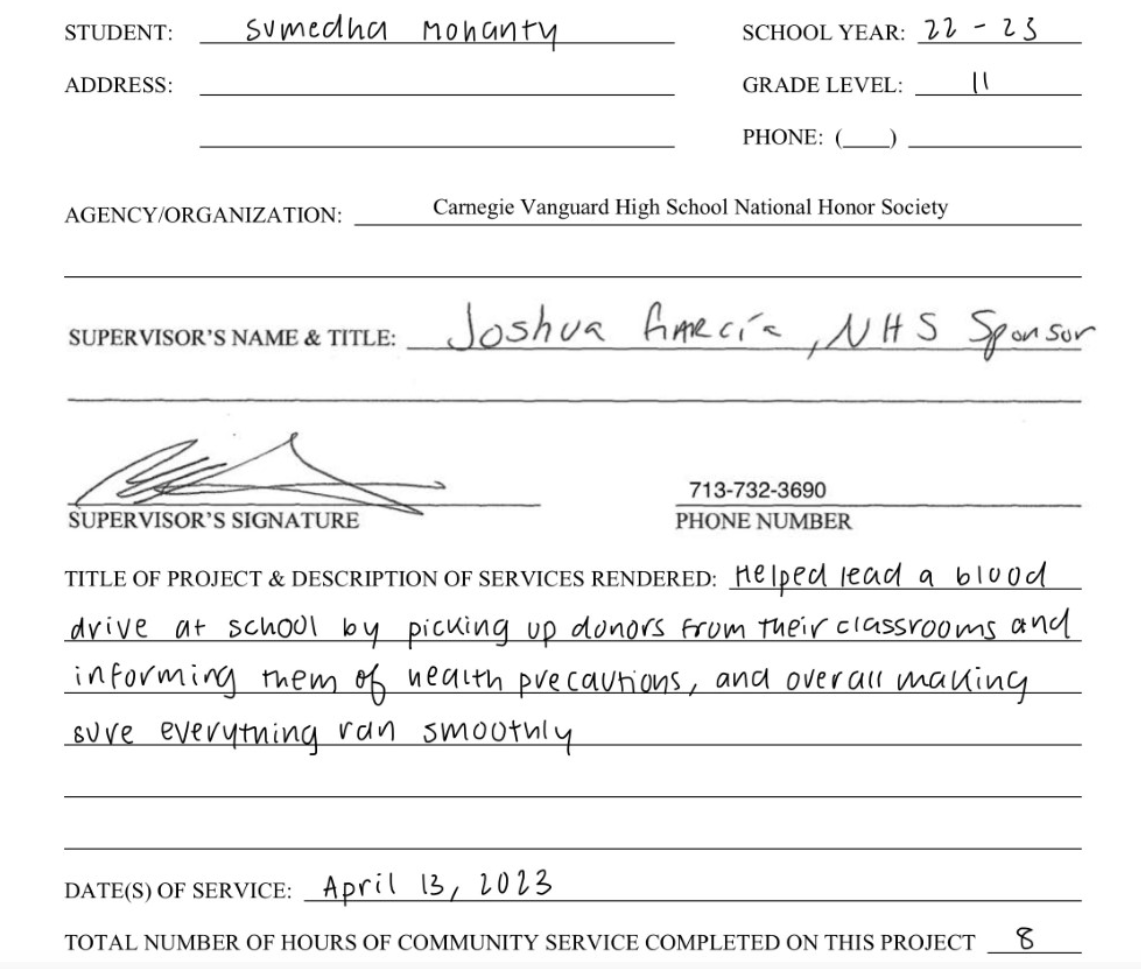 STUDENT: Sumedha Mohanty SCHOOL YEAR: 22 - 23
ADDRESS: GRADE LEVEL: 11
PHONE: (___)
AGENCY/ORGANIZATION: Carnegie Vanguard High School National Honor Society
SUPERVISOR'S NAME & TITLE: Joshua García, NHS Sponsor
713-732-3690
SUPERVISOR'S SIGNATURE PHONE NUMBER
TITLE OF PROJECT & DESCRIPTION OF SERVICES RENDERED: Helped lead a blood
drive at school by picking up donors from their classrooms and
informing them of health precautions, and overall making
sure everything ran smoothly
DATE(S) OF SERVICE: April 13, 2023
TOTAL NUMBER OF HOURS OF COMMUNITY SERVICE COMPLETED ON THIS PROJECT 8